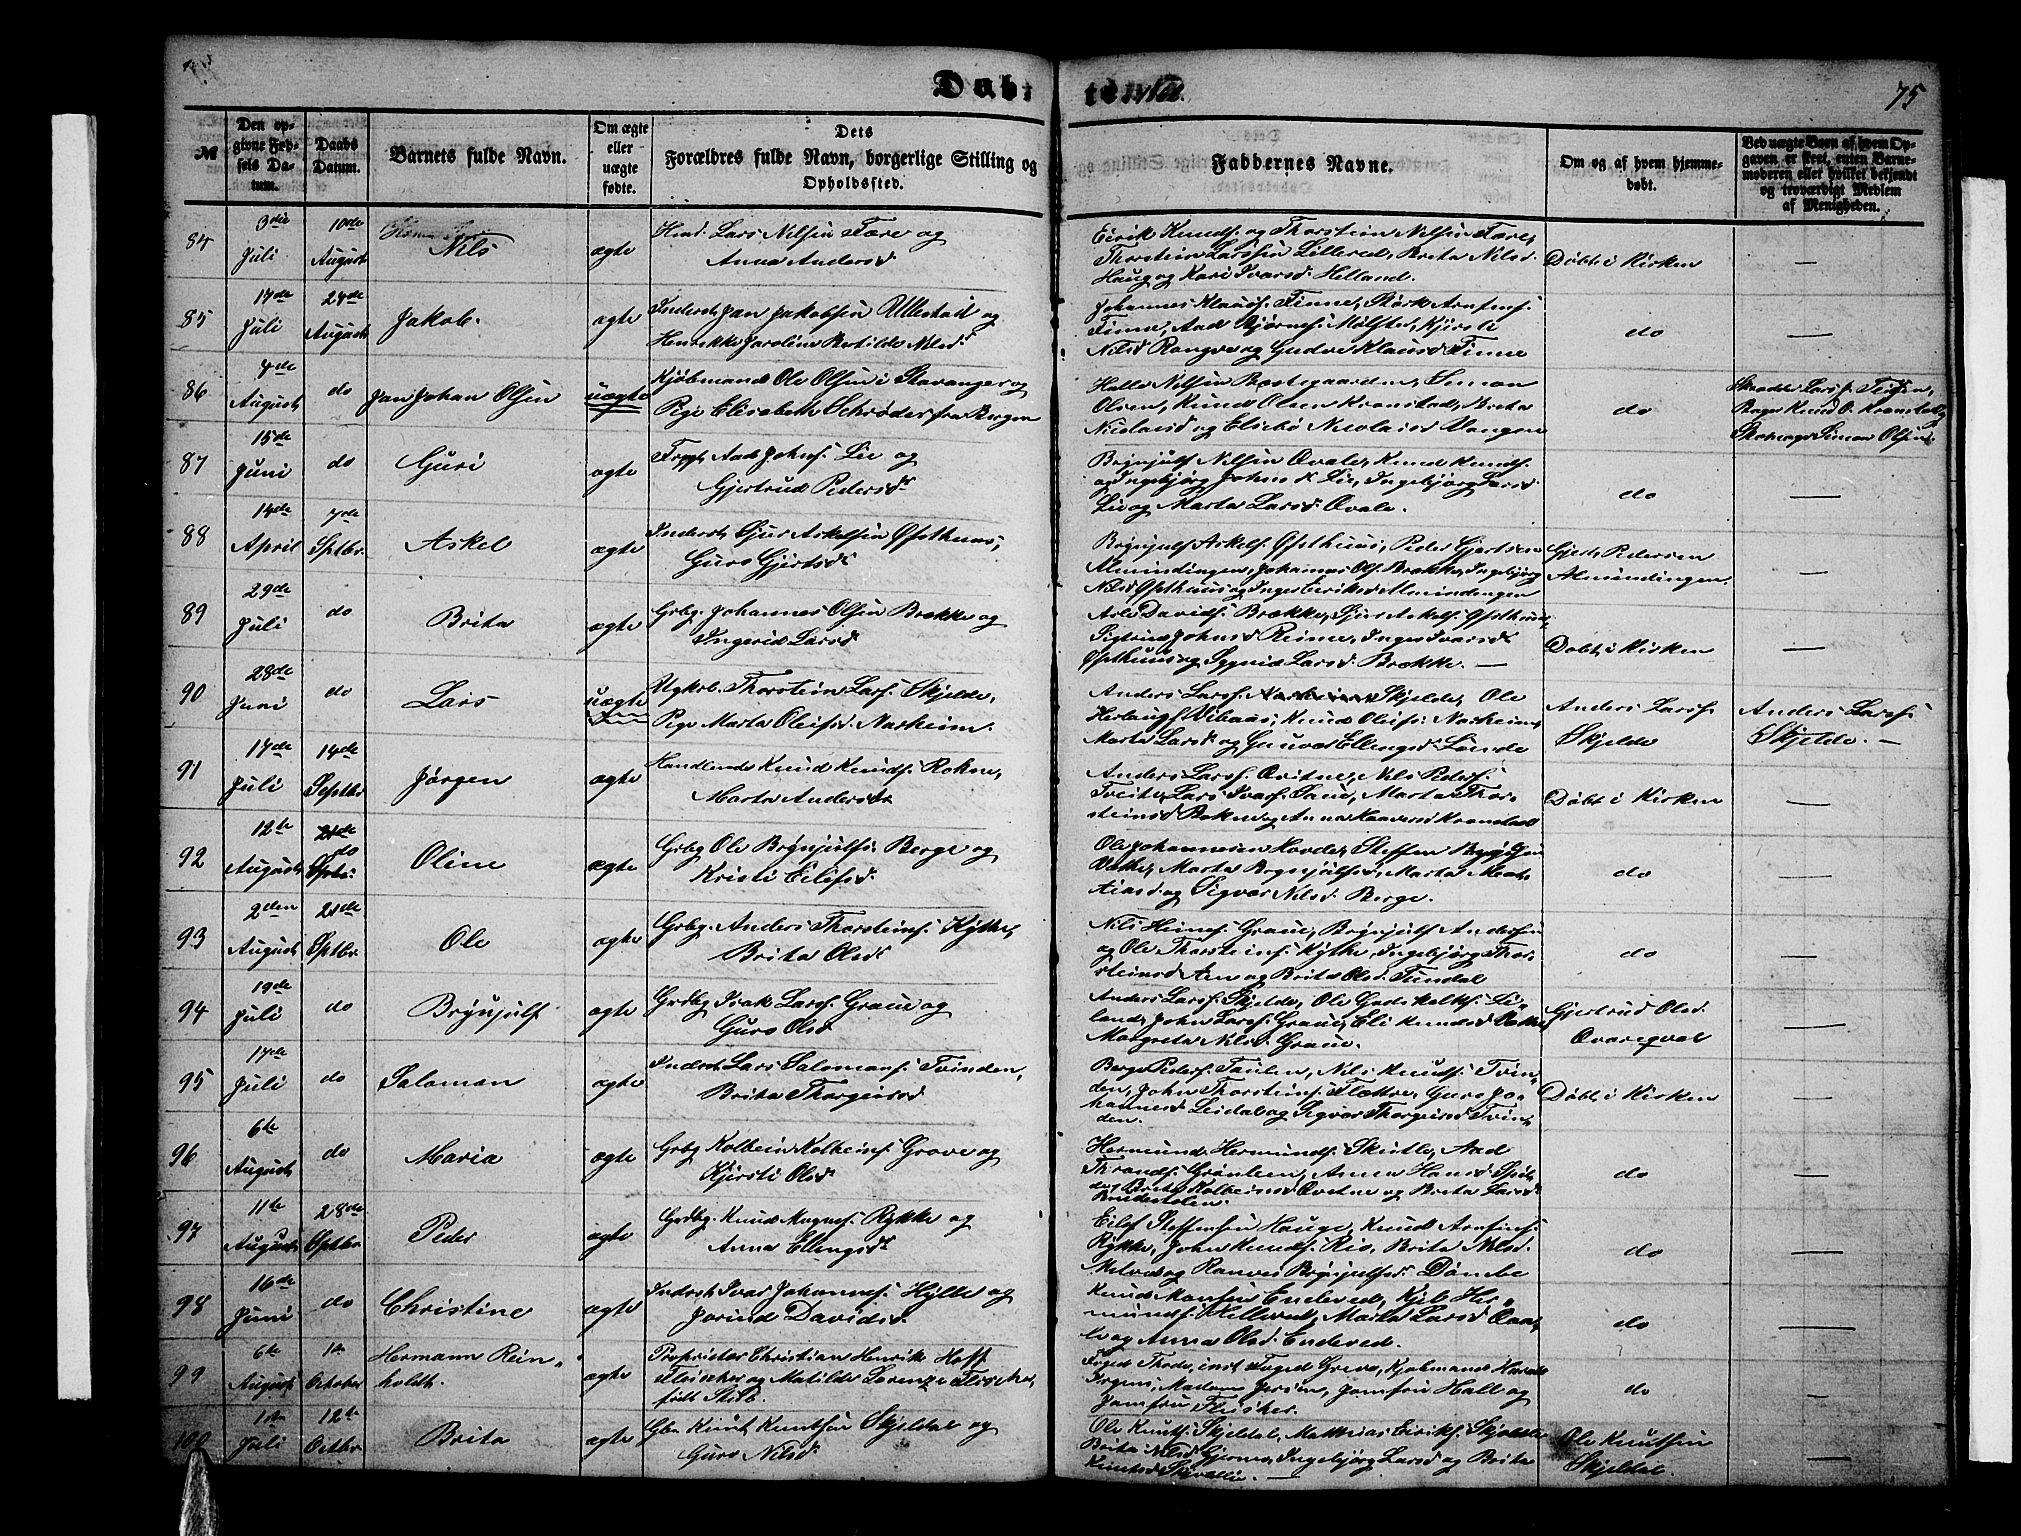 Døbte
75
№
Den opgivne Fødsels Datum.
Daabs Datum.
Barnets fulde Navn.
Om ægte eller uægte fødte.
Dets Forældres fulde Navn, borgerlige Stilling og Opholdssted.
Faddernes Navne.
Om og af hvem hjemmedøbt.
Ved uægte Børn af hvem Opgaven er skeet, enten Barnemoderen eller hvilket bekjendt og troværdigt Medlem af Menigheden.
84
3die Juli
10de August
Nils
ægte
Lars Nilsen Fære og
Anna Andersd
Eirik Knuds. og Thorstein Nilsen Fære,
Thorstein Larssen Lillered, Brita Nilsd
Haug og Kari Ivarsd. Helland.
Døbt i Kirken
—
85
17de Juli
24de August
Jakob.
ægte
Inderst Jan Jakobsen Ullestad og
Henrikke Jaroline Botilde Nilsd
Johannes Klaus. Finne, Størk Arnfins.
Finne, Aad Bjørns. Mølster, Kjersti
Nilsd Rongve og Gudve Klausd Finne
do
—
86
4de August
do
Jan Johan Olsen
uægte
Kjøbmand Ole Olsen i Stavanger og
Pige Elisabeth Schrøder fra Bergen
Halle Nilsen Præstegaarden, Simon
Olsen, Knud Olsen Kronstad, Brita
Nicolaisd og Elsebø Nicolaisd Vangen
do
Skrædder Lars
Bager Knud O. Kronstad,
Skomager Simon Olsen
87
15de Juni
do
Guri
ægte
Aad Johns. Lie og
Gjertrud Pedersd
Brynjulf Nilsen Qvale, Knud Knuds.
og Ingebjørg Johnsd Lie, Ingebjørg Larsd.
Lie og Marta Larsd Qvale.
do
—
88
14de April
7de Sptbr.
Askel
ægte
Inderst Sjur Askelsen Øfsthuus,
Guro Gjertsd
Brynjulf Askels. Øfsthuus, Peder Gjertsen
Almindingen, Johannes Ols. Brække, Ingebjørg
Nilsd Øfsthuus og Inger Eriksd Almindingen
Gjert Pedersen
Almindingen.
—
89
29de Juli
do
Brita
ægte
Grbg. Johannes Olsen Brække og
Ingerid Larsd
Arle Davids. Brække, Sjur Askels. Øfsthuus,
Johnsd Reime, Inger Ivarsd
Øfsthuus og Sygnie Larsd. Brække. —
Døbt i Kirken
—
90
28de Juni
do
Lars
uægte
Ugkrl. Thorstein Lars. Skjelde,
Pige Marta Oleifsd. Narheim.
Anders Lars. Skjelde, Ole
Herlaugs. Vibaas, Knud Oleifs. Narheim,
Marta Larsd og Gunvor Ellingsd Lønde
Anders Lars.
Skjelde
Anders Lars.
Skjelde. —
91
17de Juli
14de Septbr
Jørgen
ægte
Handlende Knud Knuds. Rokne,
Marta Andersd
Anders Lars. Qvitne, Nils Peders.
Tveite, Lars Ivars. Saue, Marta Thor-
steinsd Rokne og Anna Kronstad
Døbt i Kirken
—
92
12te August
do
Oline
ægte
Grbg Ole Brynjulfs. Berge og
Kristi Eilifsd.
Ole Johannesen Hovde, Steffen
Marta Brynjulfsd, Marta
og Sigvor Nilsd. Berge.
do
—
93
2den August
21de Sptbr.
Ole
ægte
Grbg. Anders Thorsteins. Kyte,
Brita Olsd.
Nils Heines. Graue, Brynjulf Andersen
og Ole Thorsteins. Kythe, Ingebjørg Thor-
steinsd og Brita Olsd.
do
—
94
19de Juli
do
Brynjulf
ægte
Grdbg Isak Lars. Graue og
Guro Olsd
Anders Lars. Skjelde, Ole Godskalks. Li-
land, John Lars. Graue, Eli Knudsd
Margreta Nilsd. Graue.
Gjertrud Olsd.
—
95
17de Juli
do
Salomon
ægte
Inderst Lars Salomons. Tvinden,
Brita Thorgeirsd
Børge Peders. Taulen, Nils Knuts. Tvin-
den, John Thorsteins. Flættre, Guro Jo-
hannesd Leidal og Sigvor Thorgeirsd Tvin-
den.
Døbt i Kirken
—
96
6te August
do
Maria
ægte
Grbg Kolbein Kolbeins. Grove og
Kjersti Olsd
Hermund Hermunds. Skutle, Aad
Thronds. Grønlien, Anna Hansd
Brita Kolbeinsd Qvitne og Brita Larsd
do
—
97
11te August
28de Sptbr
Peder
ægte
Grdbg. Knud Magnes. Rykke og
Anna Ellingsd
Eilef Steffensen Hauge, Knud Arnfins.
Rykke, John Knuds. Rio, Brita Nilsd.
Melve og Ranvei Brynjulfsd. Dømbe
do
—
98
16de Juni
do
Christine
ægte
Inderst Ivar Johannes. Hylle og
Jorind Davidsd.
Knud Monsen Endered, Kjel Her-
munds. Hellered, Marta Larsd
og Anna Olsd. Endered.
do
—
99
6te August
1te October
Hermann Rein-
holdt.
ægte
Proprietær Christian Henrik Hoff
Fleischer og Matilde Lorenze Fleischer,
født Stib.
Foged Thode, Foged Greve, Kjøbmand
Irgens, Madam Jersin, Jomfru Hall og
Jomfru Fleischer.
do
—
100
1ste Juli
12te Octbr
Brita
ægte
Gbr Knut Knutsen Skjeldal og
Guro Nilsd
Ole Knuts. Skjeldal, Matthias Eiriks. Skjeldal
Brita Nilsd Gjerme, Ingebjørg Larsd og Brita
Knutsd
Ole Knutsen
Skjeldal.
—